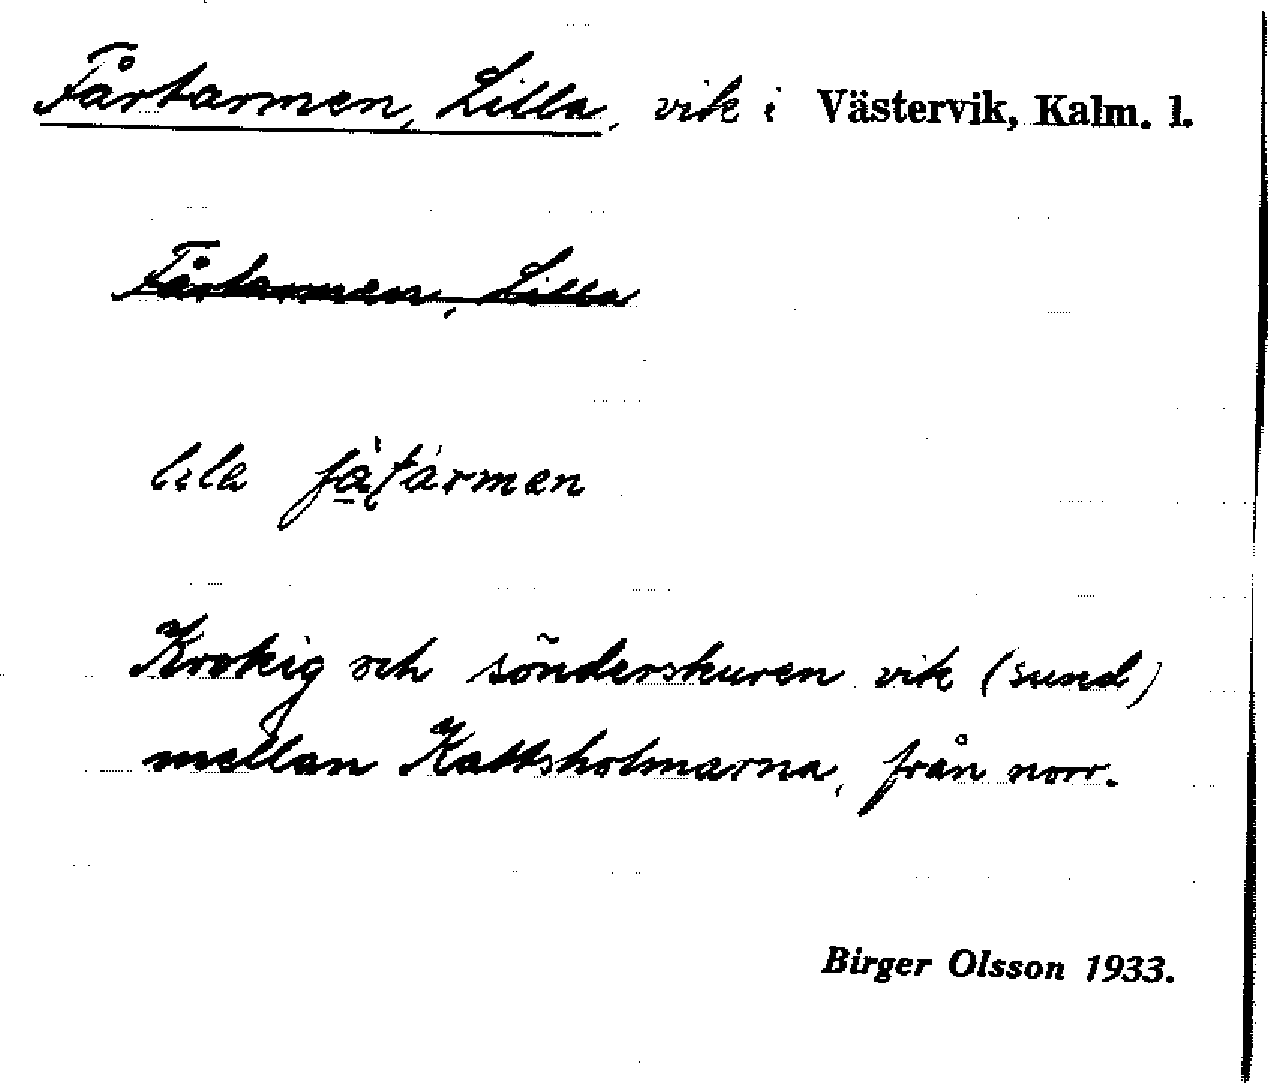 Fårtarmen, Lilla, vik i Västervik, Kalm. l.
Fårtarmen, Lilla
lila
Krokig och sönderskuren vik (sund)
mellan Kattsholmarna, från norr.
Birger Olsson 1933.